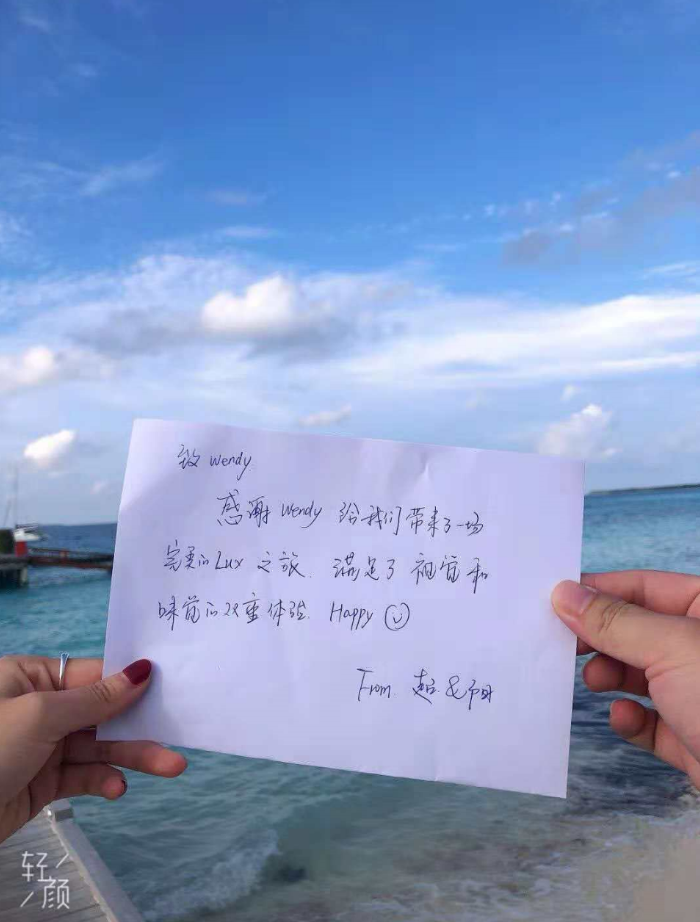 致 Wendy
感谢 Wendy 给我们带来了一场
完美的 Lux 之旅. 满足了 视觉和
味觉的双重体验. Happy
From. 超 &
轻
颜